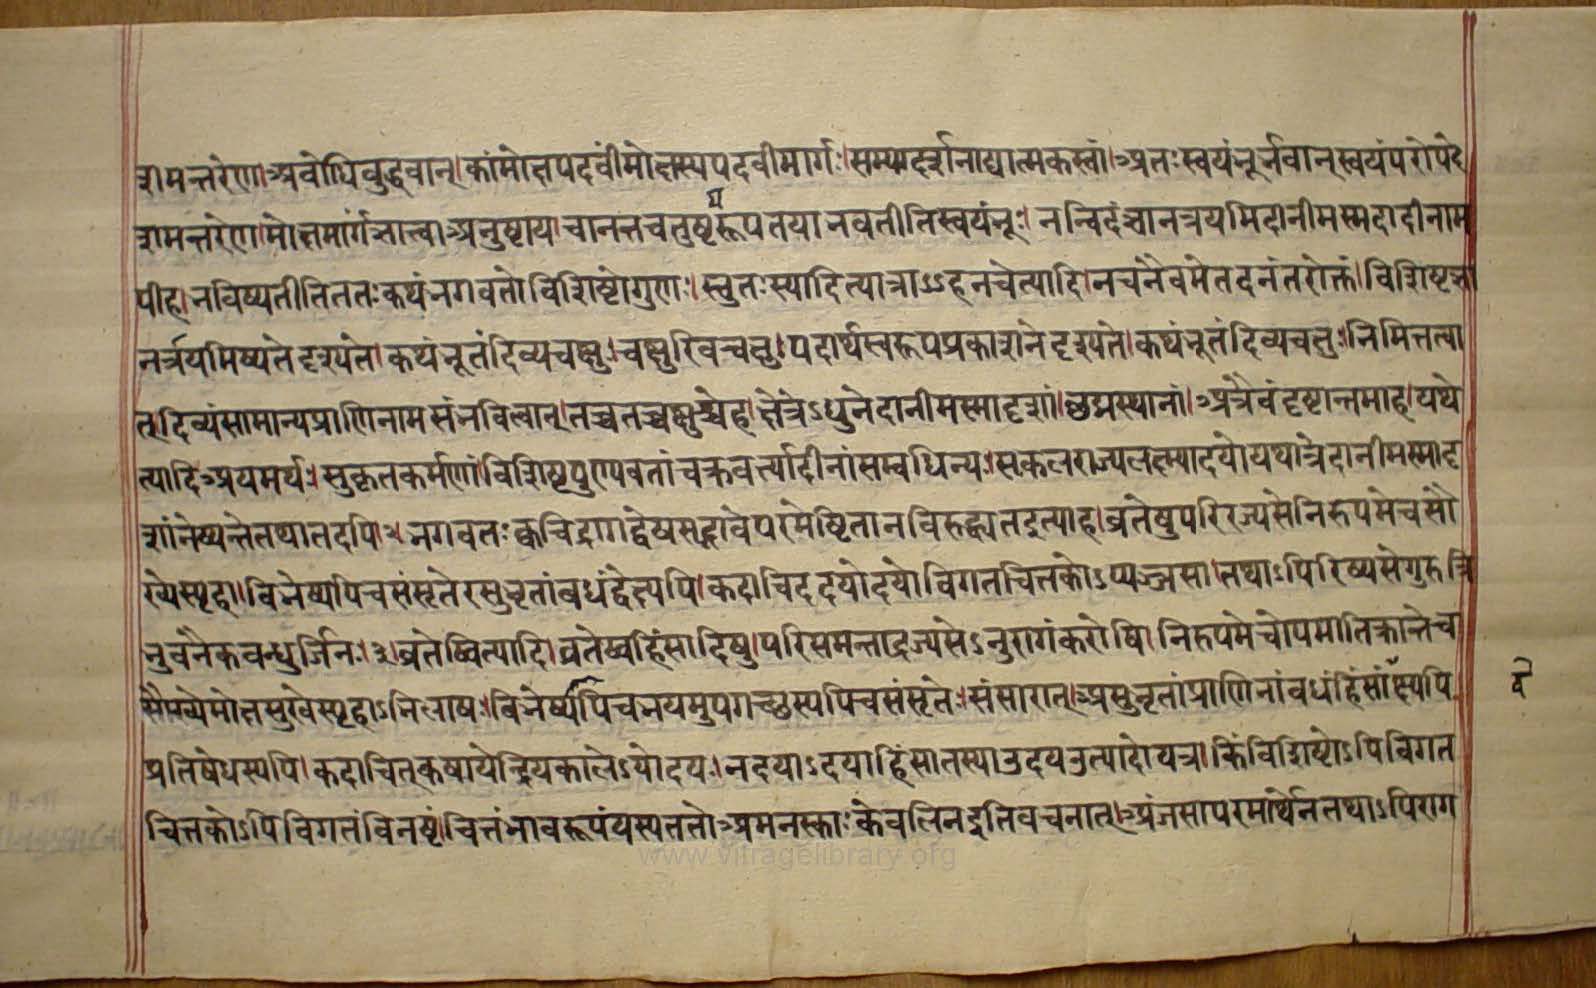 शमन्तरेण।अवोधिबुद्धवान्।कांमोक्षपदवींमोक्षस्यपदवीमार्गः।सम्यग्दर्शनाद्यात्मकस्तां।अतःस्वयंभूर्भवान्स्वयंपरोपदे
शमन्तरेण।मोक्षमार्गंज्ञात्वाअनुष्ठायचानन्तचतुष्टयरूपतयाभवतीतिस्वयंभूः।नन्विदंज्ञानत्रयमिदानीमस्मदादीनाम
पीह।भविष्यतीतिततःकथंभगवतोविशिष्टोगुणः।स्तुतःस्यादित्यात्राऽऽहनचेत्यादि।नचनैवमेतदनंतरोक्तं।विशिष्टज्ञा
नत्रयमिष्यतेदृश्यते।कथंभूतंदिव्यचक्षुः।चक्षुरिवचक्षुः।पदार्थस्वरूपप्रकाशनेदृश्यते।कथंभूतंदिव्यचक्षुः।निमित्तत्वा
त्।दिव्यंसामान्यप्राणिनामसंभवित्वात्।तच्चतच्चक्षुश्चेह।क्षेत्रेऽधुनेदानीमस्मादृशां।छद्मस्थानां।अत्रैवंदृष्टान्तमाह।यथे
त्यादिअयमर्थः।सुकृतकर्मणां।विशिष्टपुण्यवतांचक्रवर्त्यादीनांसम्बधिन्यः।सकलराज्यलक्ष्म्यादयोयथात्रेदानीमस्मादृ
शांनेष्यन्तेतथातदपि।२।भगवतःक्वचिद्रागद्वेषसद्भावेपरमेष्ठितानविरुद्ध्यतइत्याह।व्रतेषुपरिरज्यसेनिरुपमेचसौ
ख्येस्पृहा।बिभेष्यपिचसंसृतेरसुभृतांबधंद्वेक्ष्यपि।कदाचिददयोदयोविगतचित्तकोऽप्यञ्जसा।तथाऽपिरिष्यसेगुरुस्त्रि
भुवनैकबन्धुर्जिनः।३।व्रतेष्वित्यादि।व्रतेष्वहिंसादिषु।परिसमन्ताद्रज्यसेऽनुरागंकरोषि।निरुपमेचोपमातिक्रान्तेच
सौख्येमोक्षसुखेस्पृहाऽभिलाषः।बिभेर्ष्यपिचभयमुपगच्छस्यपिचसंसृतेः।संसारात्।असुभृतांप्राणिनांबधंहिंसांस्यपि
द्वे
प्रतिषेधस्यपि।कदाचित्कषायेन्द्रियकालेऽयोदयः।नदयाऽदयाहिंसातस्याउदयउत्पादोयत्र।किंविशिष्टोऽपिविगत
चित्तकोऽपिविगतंविनष्टं।चित्तंभावरूपंयस्यततोअमनस्काःकेवलिनइतिवचनात्।अंजसापरमार्थेनतथाऽपिराग
www.vitragelibrary.org